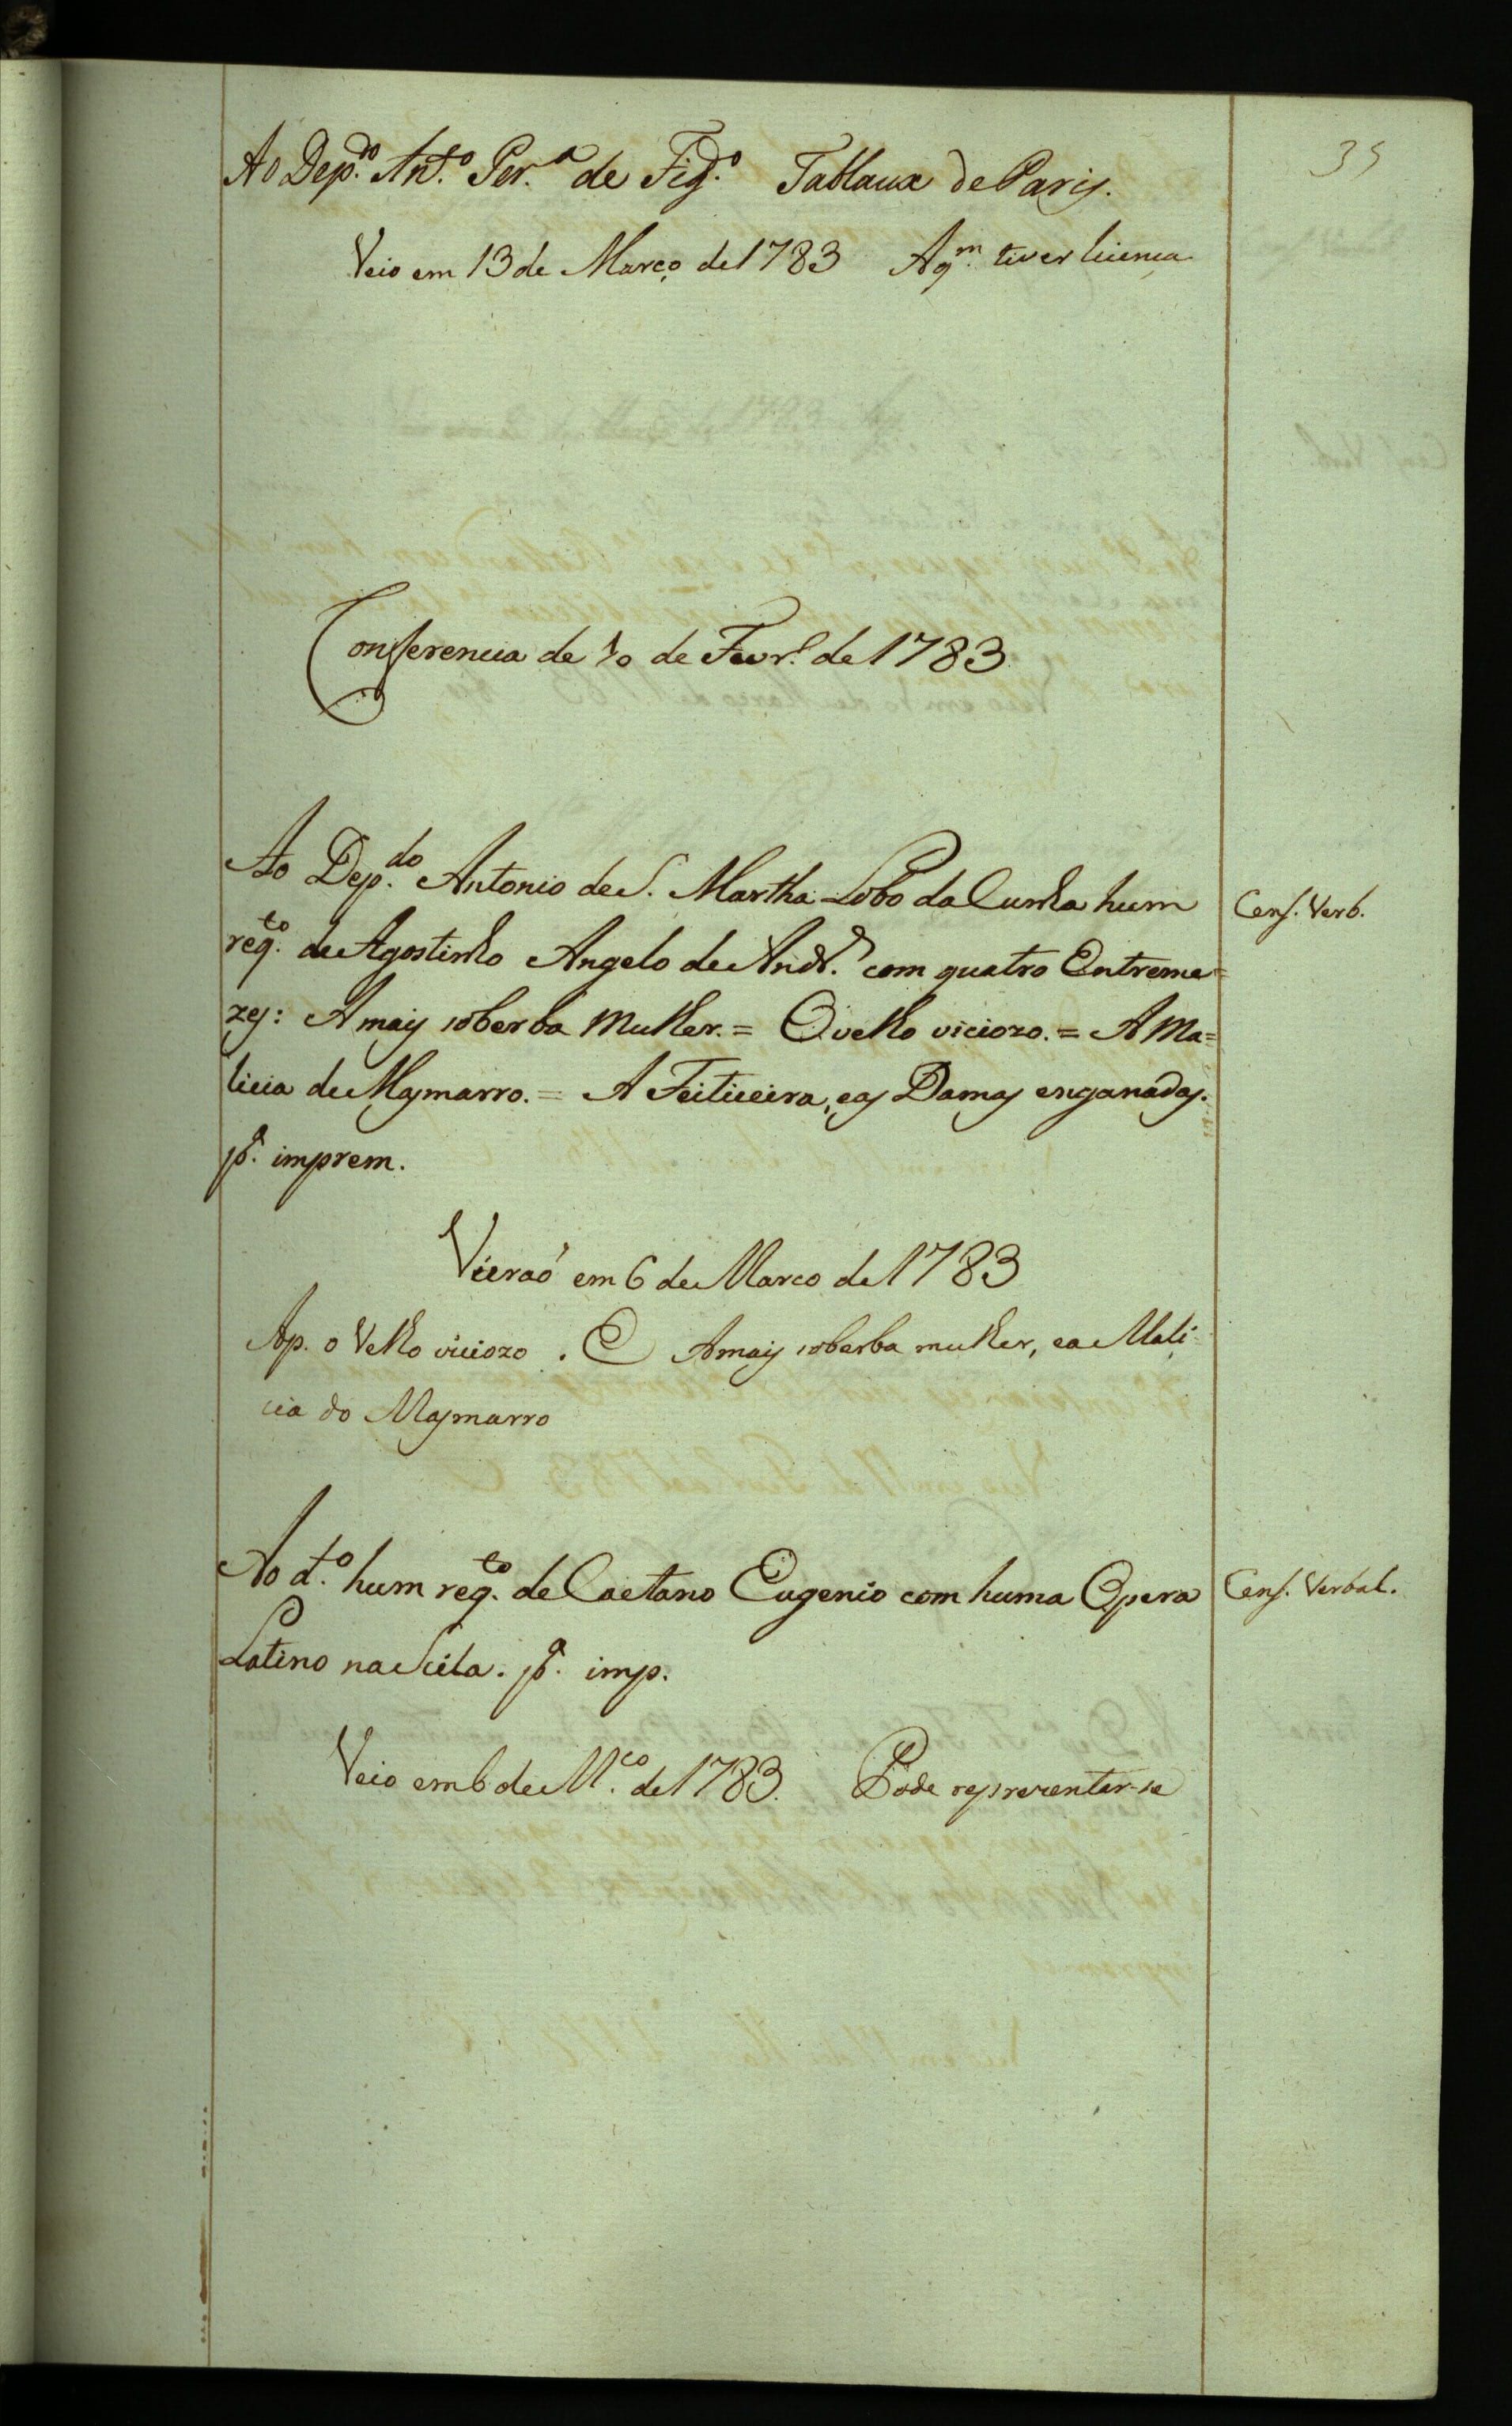 35
Ao Dep.do Ant.o Per.a de Fig.o Tablaux de Paris.
Veio em 13 de Março de 1783 A q.m tiver licença
Conferencia de 10 de Fevr.o de 1783
Ao Dep.do Antonio de S. Martha Lobo da Cunha hum
Cens. Verb.
req.to de Agostinho Angelo de Andr.e com quatro Entreme=
zes: A mais soberba Mulher. = O velho viciozo. = A Ma=
licia de Masmarro. = A Feiticeira, e as Damas enganadas.
p.a imprem.
Vieraõ em 6 de Marco de 1783
Ap. o Velho viciozo. E A mais soberba mulher, e a Mali-
cia do Masmarro
Ao d.o hum req.to de Caetano Eugenio com huma Opera
Cens. Verbal.
Latino na Scita. p.a imp.
Veio em 6 de M.co de 1783. Pode representar-se